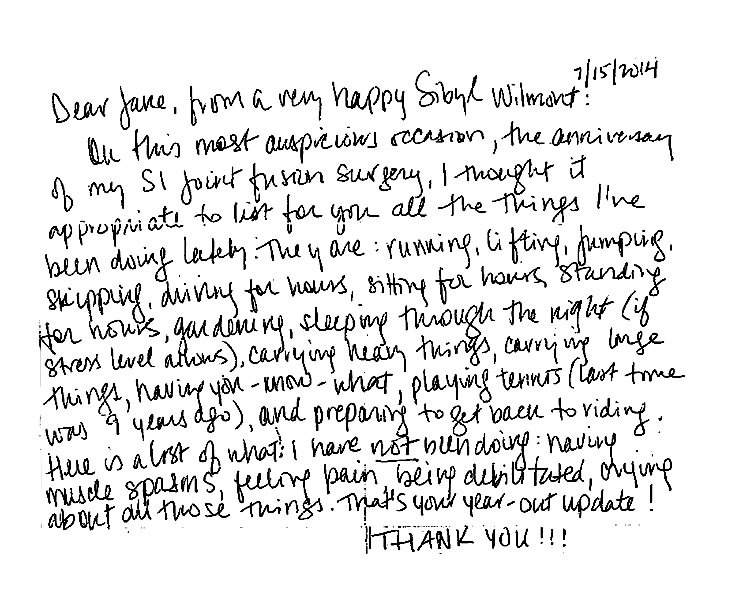 7/15/2014
Dear Jane, from a very happy Sibyl Wilmont:
On this most auspicious occasion, the anniversary
of my SI joint fusion surgery, I thought it
appropriate to list for you all the things I've
been doing lately. They are: running, lifting, jumping,
skipping, driving for hours, sitting for hours, standing
for hours, gardening, sleeping through the night (if
stress level allows), carrying heavy things, carrying large
things, having you-know-what, playing tennis (last time
was 9 years ago), and preparing to get back to riding.
Here is a list of what I have not been doing: having
muscle spasms, feeling pain, being debilitated, crying
about all those things. That's your year-out update!
THANK YOU!!!